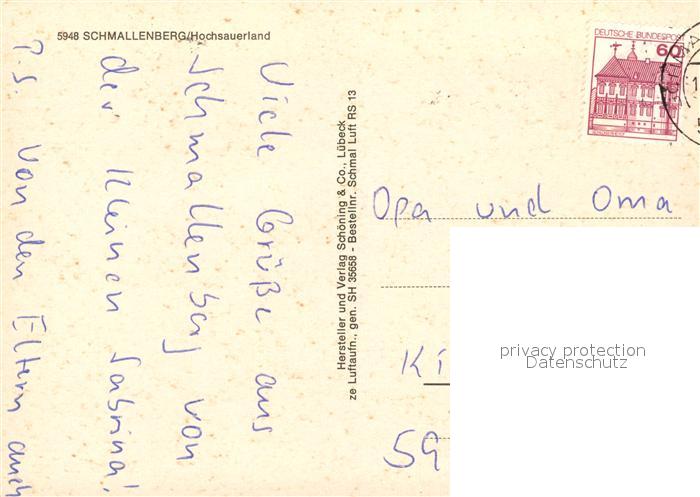 5948 SCHMALLENBERG/Hochsauerland
Viele Grüße aus
Schmallenberg von
der kleinen Sabrina!
P.S. Von den Eltern auch
Hersteller und Verlag Schöning & Co., Lübeck
ze Luftaufn., gen. SH 35658 - Bestellnr. Schmal Luft RS 13
DEUTSCHE BUNDESPOST
60
Opa und Oma
Ki
59
privacy protection
Datenschutz